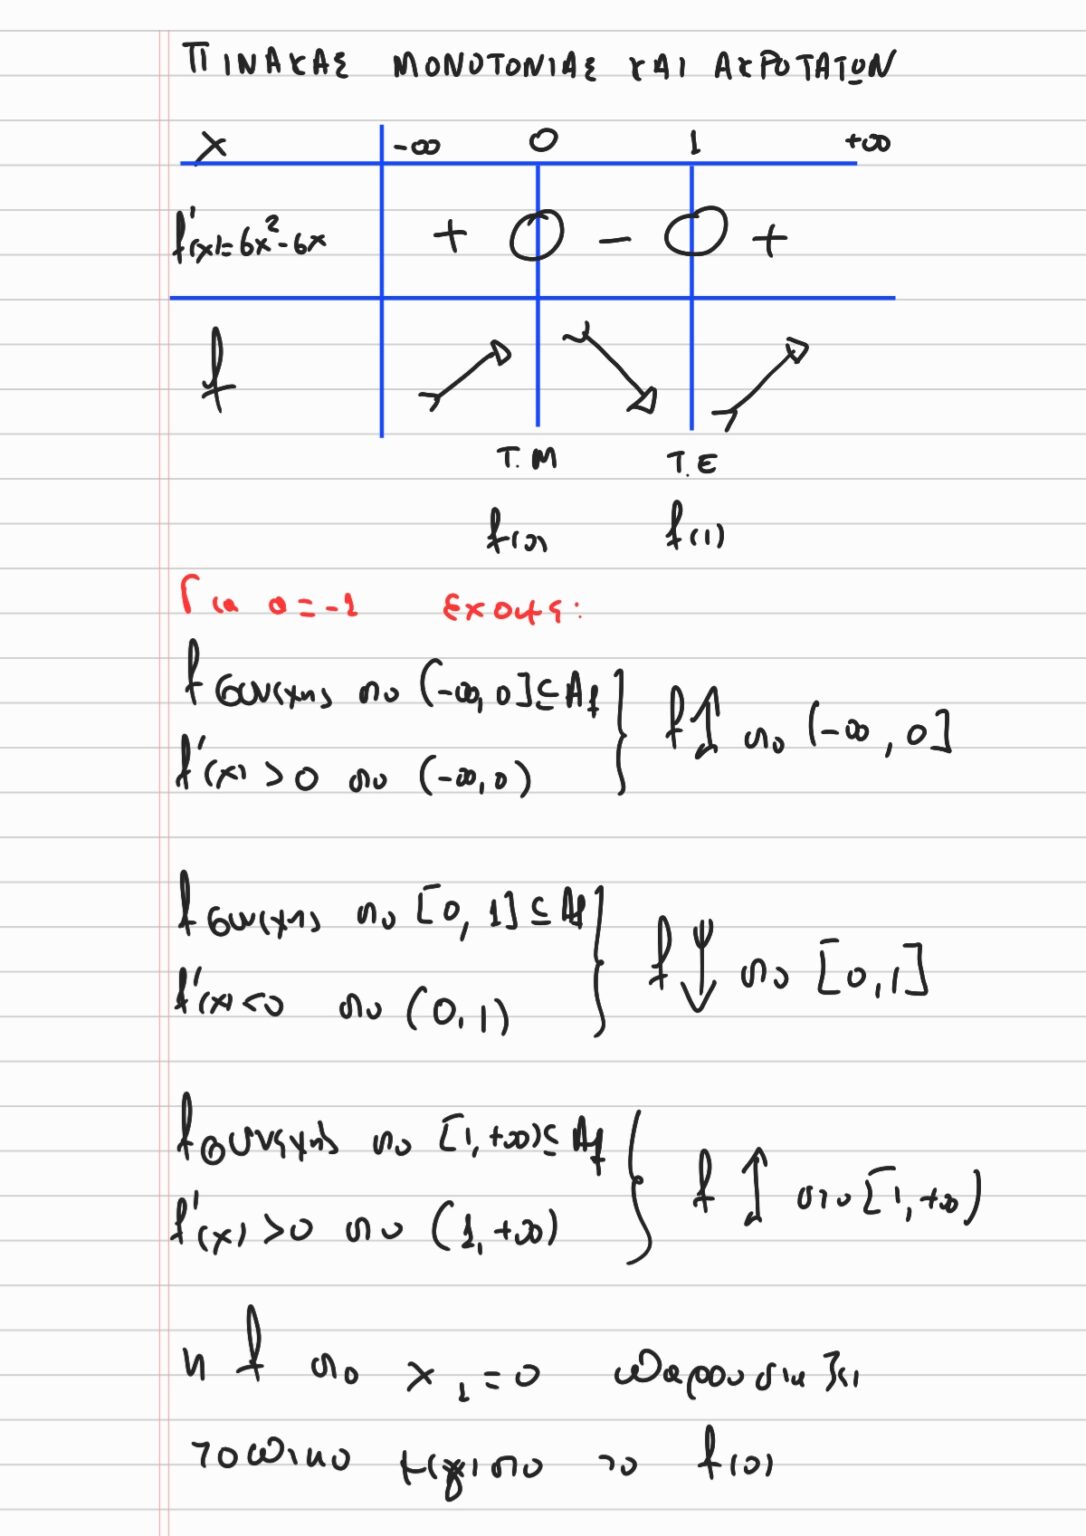 ΠΙΝΑΚΑΣ ΜΟΝΟΤΟΝΙΑΣ ΚΑΙ ΑΚΡΟΤΑΤΩΝ
x -∞ 0 1 +∞
f'(x)=6x²-6x + 0 - 0 +
f
T.M T.E
f(0) f(1)
Για α=-1 έχουμε:
f συνεχης στο (-∞,0]⊆Af
f'(x)>0 στο (-∞,0)
} f↑ στο (-∞,0]
f συνεχης στο [0,1]⊆Af
f'(x)<0 στο (0,1)
} f↓ στο [0,1]
f συνεχης στο [1,+∞)⊆Af
f'(x)>0 στο (1,+∞)
} f↑ στο [1,+∞)
η f στο x₁=0 παρουσιαζει
τοπικο μεγιστο το f(0)